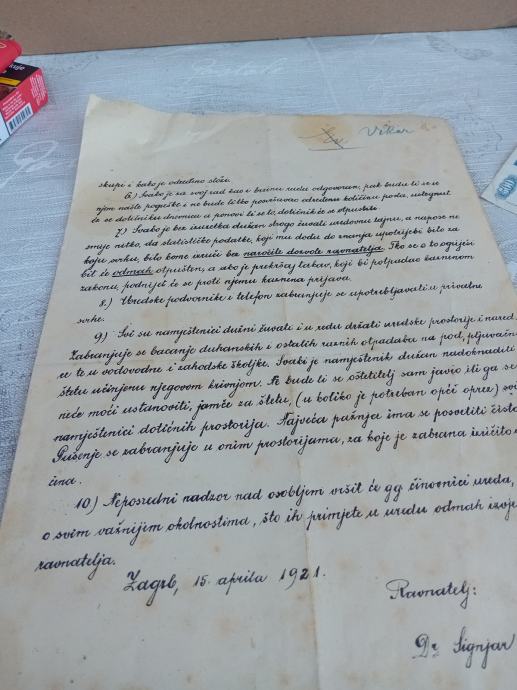 Vikar
skupi i kako je određeno slože.
6) Svako je za svoj rad kao i brzinu rada odgovoran, pak budu li se u
njem našle pogreške i ne bude li tko postizavao određenu količinu posla, ustegnut
će se dotičniku dnevnica a ponovi li se to, dotičnik će se otpustiti.
7) Svako je bez izuzetka dužan strogo čuvati uredovnu tajnu, a napose ne
smije nitko, da statističke podatke, koji mu dođu do znanja upotrijebi bilo za
koju svrhu, bilo kome izruči bez naročite dozvole ravnatelja. Tko se o to ogriješi
bit će odmah otpušten, a ako je prekršaj takav, koji bi potpadao kaznenom
zakonu, podnijet će se proti njemu kaznena prijava.
8.) Uredske podvornike i telefon zabranjuje se upotrebljavati u privatne
svrhe.
9) Svi su namještenici dužni čuvati i u redu držati uredske prostorije i
Zabranjuje se bacanje duhanskih i ostalih raznih otpadaba na pod,
te u vodovodne i zahodske školjke. Svaki je namještenik dužan nadoknaditi
štetu učinjenu njegovom krivnjom. Ne bude li se oštetitelj sam javio ili ga se
neće moći ustanoviti, jamče za štetu, (u koliko je potreban opći oprez) svi
namještenici dotičnih prostorija. Najveća pažnja ima se posvetiti
Pušenje se zabranjuje u onim prostorijama, za koje je zabrana izričito
ćina.
10) Neposredni nadzor nad osobljem vršit će gg. činovnici ureda,
o svim važnijem okolnostima, što ih primjete u uredu odmah
ravnatelja.
Zagrb, 15. aprila 1921.
Ravnatelj:
Dr Signjar